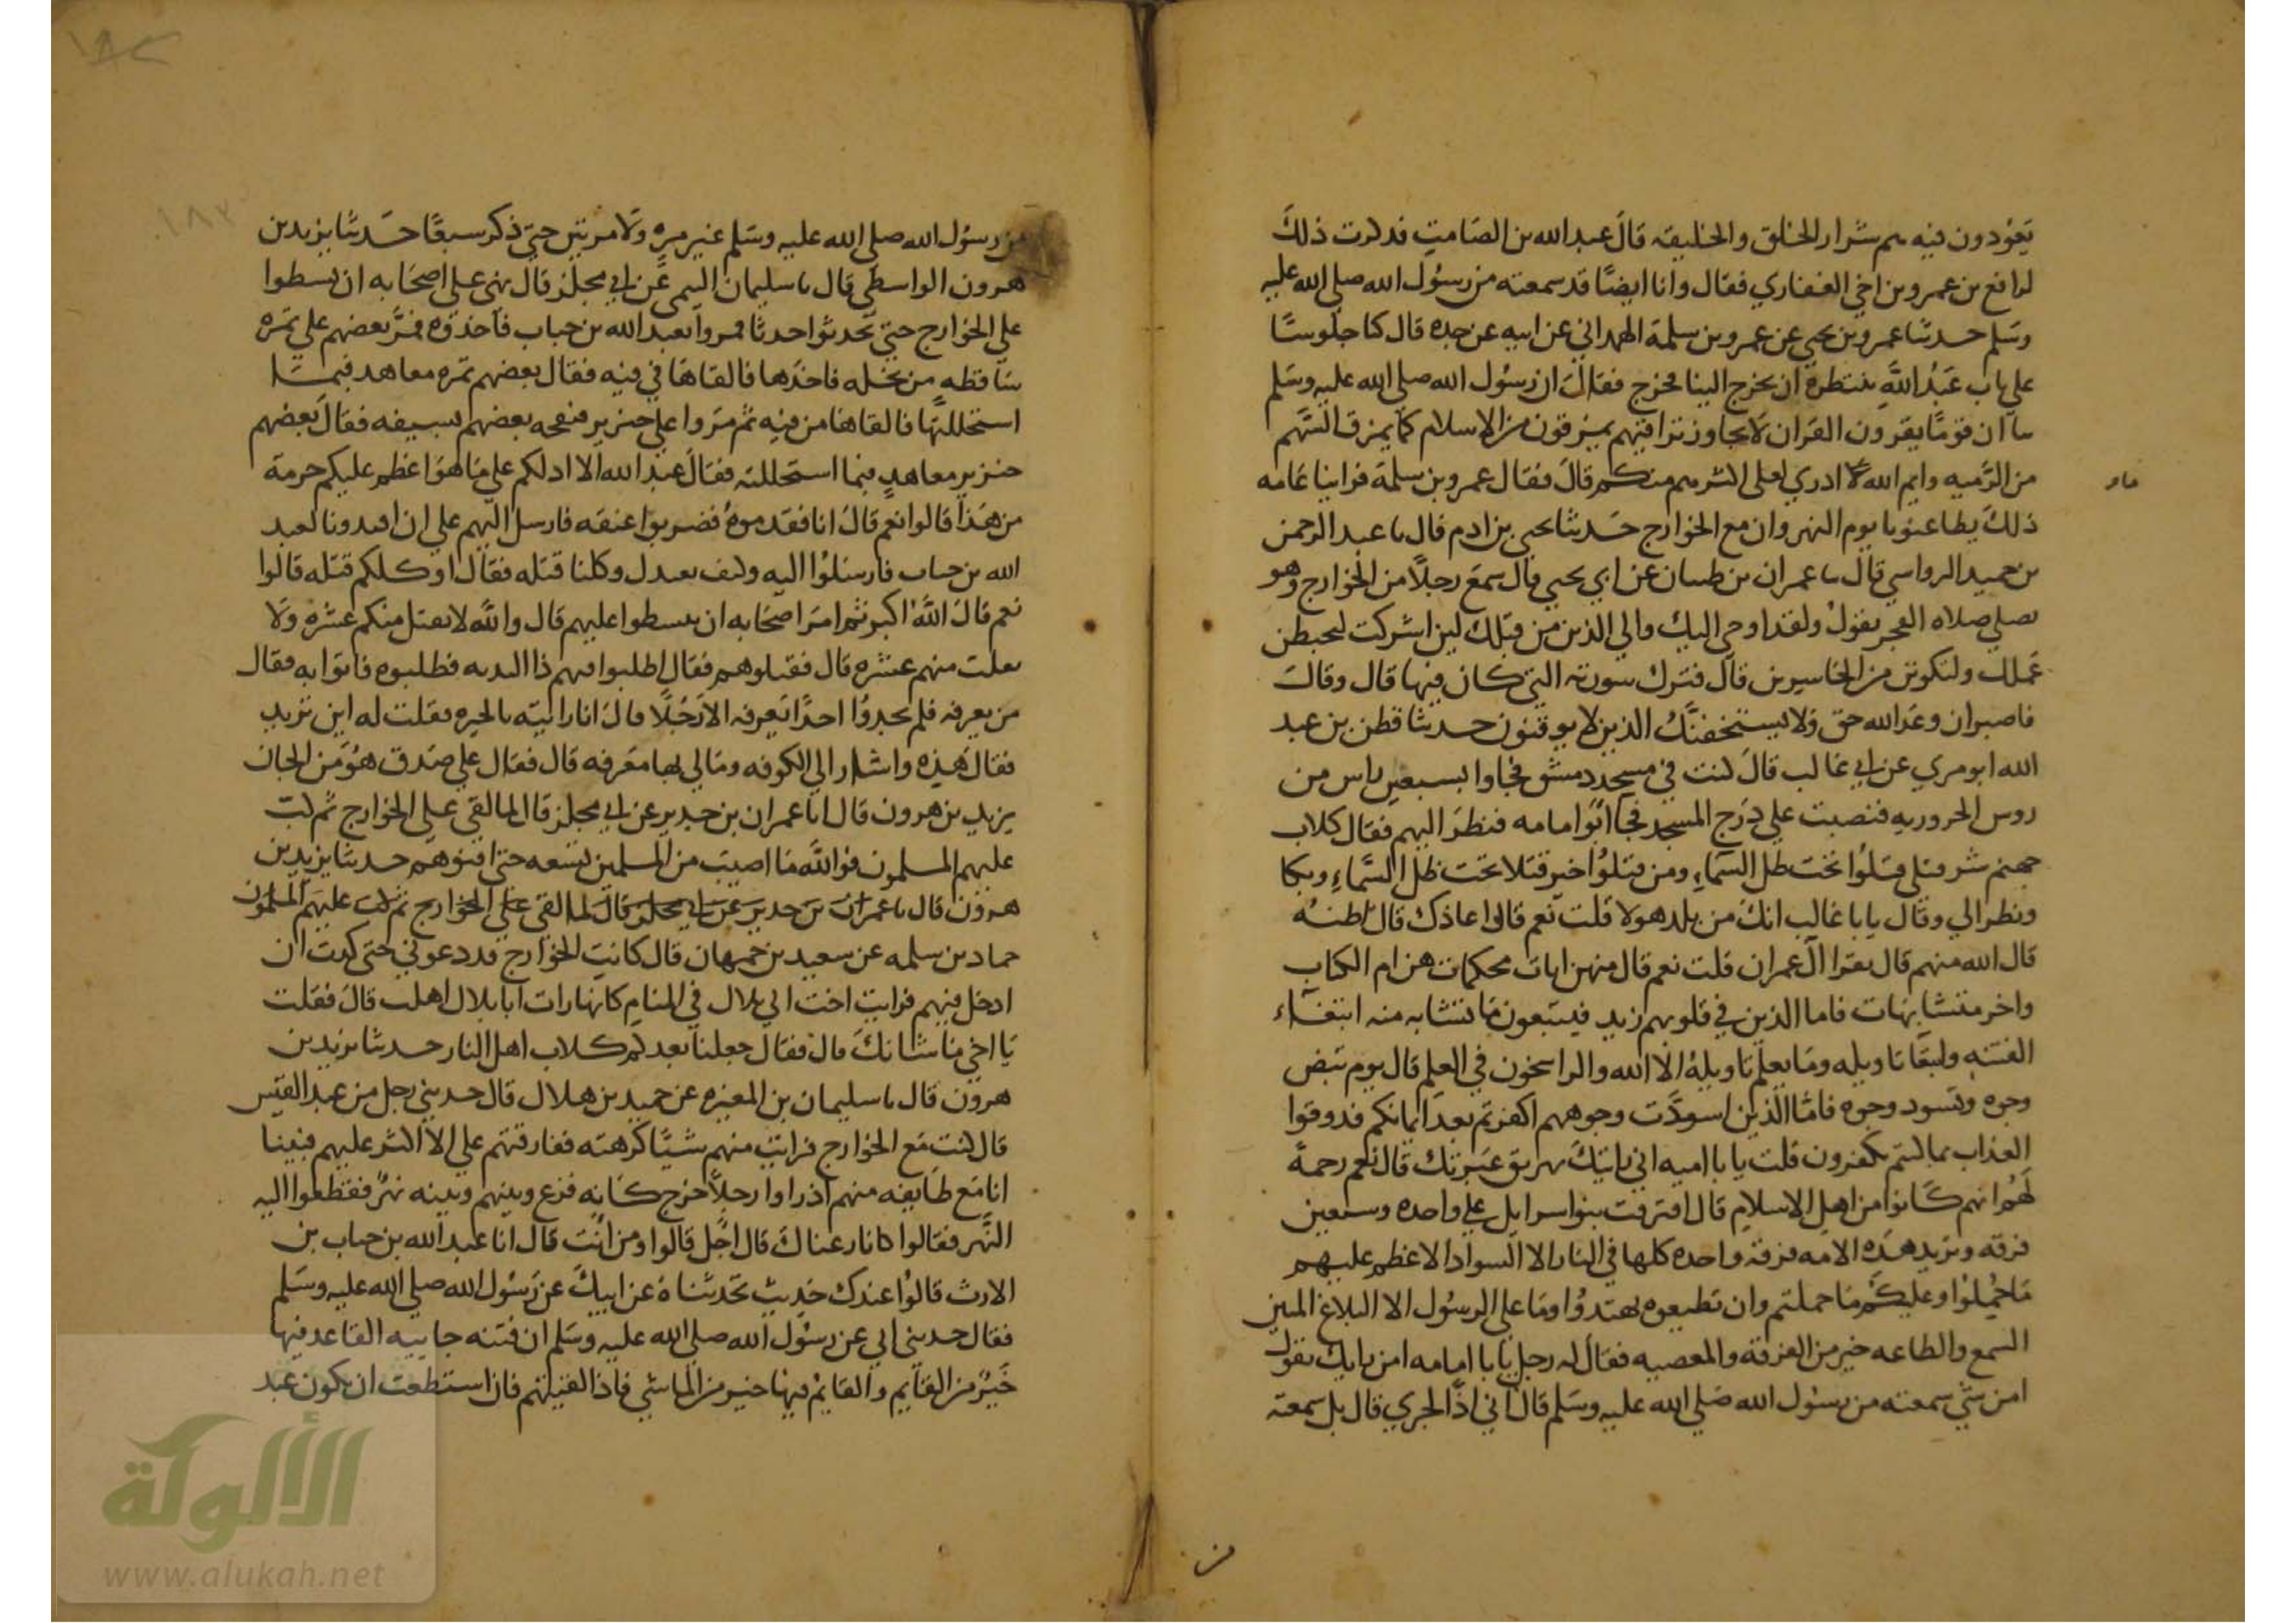 يعودون فيه هم شرار الخلق والخليقه قال عبد الله بن الصامت فذكرت ذلك
لرافع بن عمرو بن اخي الغفاري فقال وانا ايضًا قد سمعته من رسول الله صلى الله عليه
وسلم حدثنا عمرو بن يحيى عن عمرو بن سلمة الهمداني عن ابيه عن جده قال كنا جلوسًا
على باب عبد الله ننتظره ان يخرج الينا فخرج فقال ان رسول الله صلى الله عليه وسلم
نا ان قومًا يقرون القران لا يجاوز تراقيهم يمرقون من الاسلام كما يمرق السهم
من الرميه وايم الله لا ادري لعل اكثرهم منكم قال فقال عمرو بن سلمة فراينا عامه
ذلك يطاعنونا يوم النهروان مع الخوارج حدثنا يحيى بن ادم قال نا عبد الرحمن
بن حميد الرواسي قال نا عمران بن ظبيان عن ابي يحيى قال سمع رجلًا من الخوارج وهو
يصلي صلاه الفجر يقول ولقد اوحى اليك والي الذين من قبلك لين اشركت ليحبطن
عملك ولتكونن من الخاسرين قال فترك سورته التي كان فيها قال وقال
فاصبر ان وعد الله حق ولا يستخفنك الذين لا يوقنون حدثنا قطن بن عبد
الله ابو مري عن ابي غالب قال كنت في مسجد دمشق فجاوا بسبعين راس من
روس الحروريه فنصبت على درج المسجد فجا ابو امامه فنظر اليهم فقال كلاب
جهنم شر قتلى قتلوا تحت ظل السماء ومن قتلوا خير قتلا تحت ظل السماء وبكا
ونظر الي وقال يا با غالب انك من بلد هولا قلت نعم قال اعاذك قال اظنه
قال الله منهم قال تقرا ال عمران قلت نعم قال منهن ايات محكمات هن ام الكتاب
واخر متشابهات فاما الذين في قلوبهم زيد فيتبعون ما تشابه منه ابتغاء
الفتنه وابتغا تاويله وما يعلم تاويله الا الله والراسخون في العلم قال يوم تبيض
وجوه وتسود وجوه فاما الذين اسودت وجوههم اكفرتم بعد ايمانكم فذوقوا
العذاب بما كنتم تكفرون قلت يا با اميه اني رايتك تهريق عبرتك قال نعم رحمة
لهم انهم كانوا من اهل الاسلام قال افترقت بنوا سرايل على واحده وسبعين
فرقه وتزيد هذه الامه فرقة واحده كلها في النار الا السواد الاعظم عليهم
ما حملوا وعليكم ما حملتم وان تطيعوه تهتدوا وما على الرسول الا البلاغ المبين
السمع والطاعه خير من الفرقة والمعصيه فقال له رجل يا با امامه امن رايك تقول
امن شي سمعته من رسول الله صلى الله عليه وسلم قال اني اذًا لجري قال بل سمعته
من
من رسول الله صلى الله عليه وسلم غير مره ولا مرتين حتي ذكر سبعًا حدثنا يزيد بن
هرون الواسطي قال نا سليمان التيمي عن ابي مجلز قال نهى علي اصحابه ان يبسطوا
على الخوارج حتي يحدثوا حدثا فمروا بعبد الله بن خباب فاخذوه فمر بعضهم على تمره
ساقطه من نخله فاخذها فالقاها في فيه فقال بعضهم تمره معاهد فبما
استحللتها فالقاها من فيه ثم مروا على خنزير فنفحه بعضهم بسيفه فقال بعضهم
خنزير معاهد فبما استحللته فقال عبد الله الا ادلكم على ما هو اعظم عليكم حرمة
من هذا قالوا نعم قال انا فقدموه فضربوا عنقه فارسل اليهم علي ان اقيدونا لعبد
الله بن خباب فارسلوا اليه وكيف نقيدك وكلنا قتله فقال اوكلكم قتله قالوا
نعم قال الله اكبر ثم امر اصحابه ان يبسطوا عليهم قال والله لا يقتل منكم عشره ولا
يفلت منهم عشره قال فقتلوهم فقال اطلبوا فيهم ذا الثديه فطلبوه فاتوا به فقال
من يعرفه فلم يجدوا احدًا يعرفه الا رجلًا قال انا رايته بالحيره فقلت له اين تريد
فقال هذه واشار الي الكوفه ومالي بها معرفه قال فقال علي صدق هو من الجان
يزيد بن هرون قال انا عمران بن حدير عن ابي مجلز قال لما لقي علي الخوارج ثم
عليهم المسلمون فوالله ما اصيب من المسلمين تسعه حتى افنوهم حدثنا يزيد بن
هرون قال نا عمران بن حدير عن ابي مجلز قال لما لقي علي الخوارج ثم عليهم المسلمون
حماد بن سلمه عن سعيد بن جمهان قال كانت الخوارج قد دعوني حتى كدت ان
ادخل فيهم فرايت اخت ابي بلال في المنام كانها رات ابا بلال اهلب قال فقلت
يا اخي ما شانك قال فقال جعلنا بعدكم كلاب اهل النار حدثنا يزيد بن
هرون قال نا سليمان بن المغيره عن حميد بن هلال قال حدثني رجل من عبد القيس
قال كنت مع الخوارج فرايت منهم شيًا كرهته ففارقتهم على الا اكثر عليهم فبينا
انا مع طايفه منهم اذ راوا رجلًا خرج كانه فزع وبينهم وبينه نهر فقطعوا اليه
النهر فقالوا كانا رعناك قال اجل قالوا ومن انت قال انا عبد الله بن خباب بن
الارت قالوا عندك حديث تحدثناه عن ابيك عن رسول الله صلى الله عليه وسلم
فقال حدثني ابي عن رسول الله صلى الله عليه وسلم ان فتنه جاييه القاعد فيها
خير من القايم والقايم فيها خير من الماشي فاذا لقيتهم فان استطعت ان تكون عبد
الألوكة
www.alukah.net